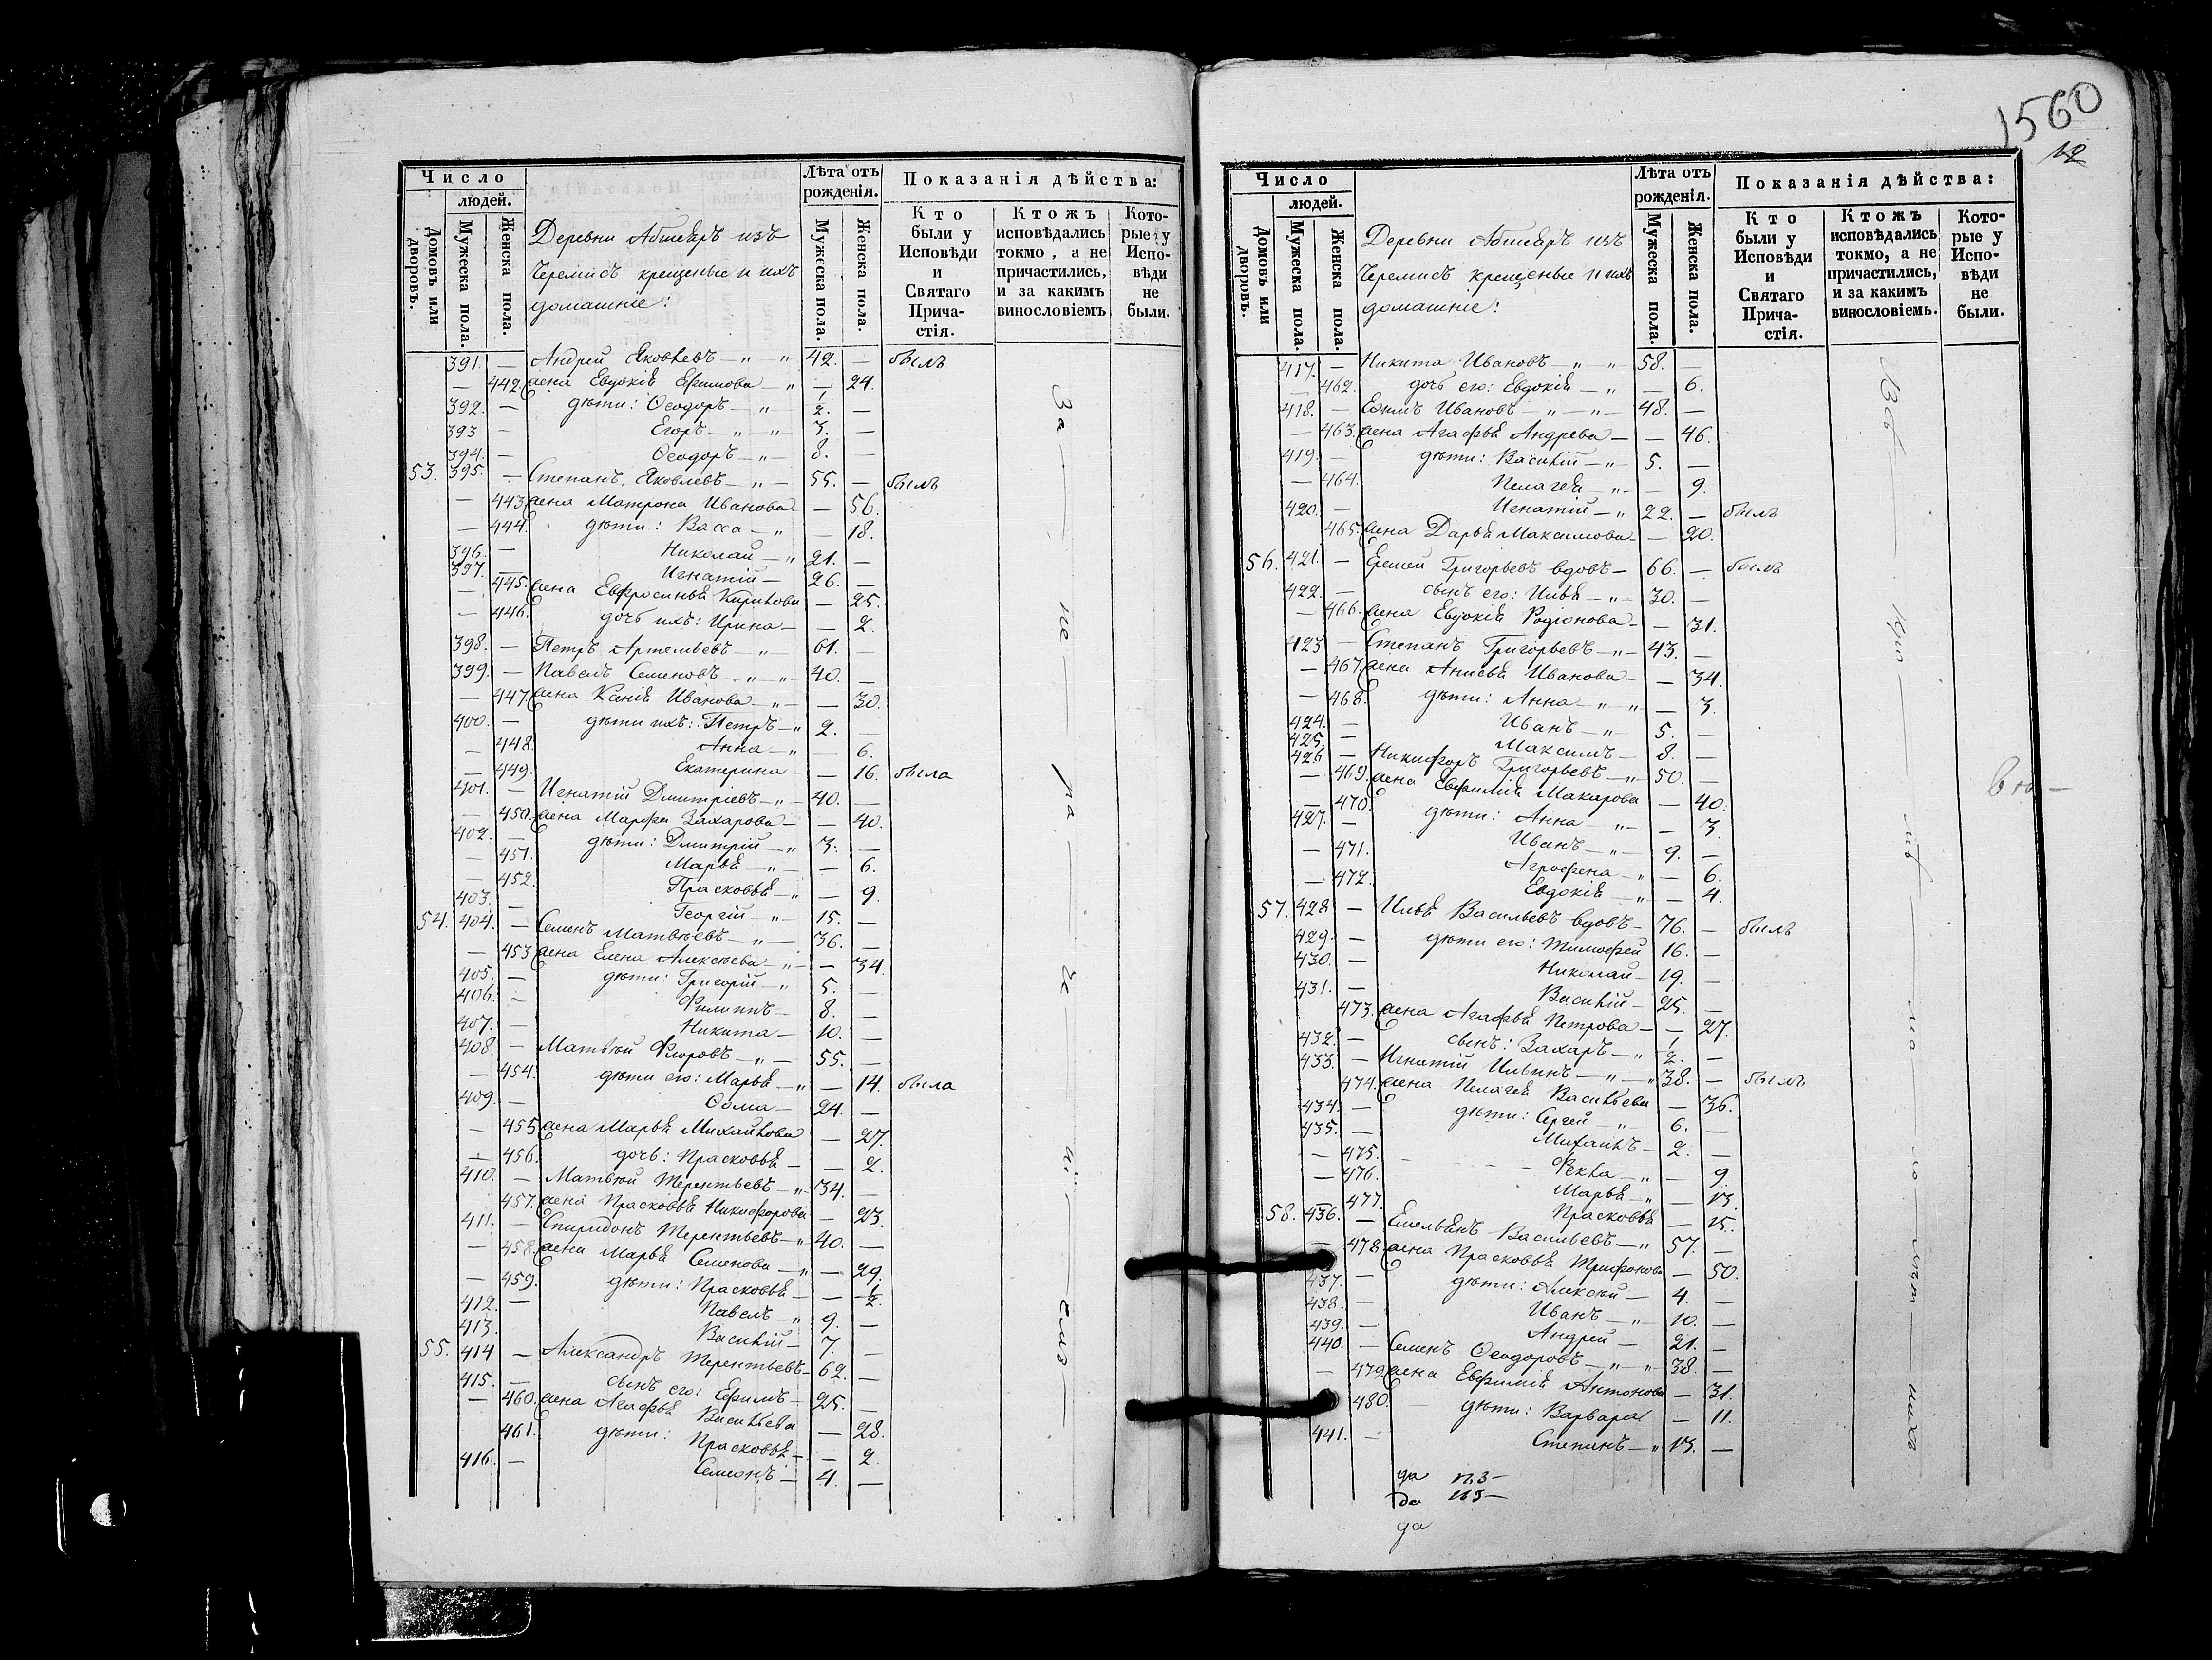 1560
12
Число
людей.
Домовъ или дворовъ.
Мужеска пола.
Женска пола.
Лѣта отъ рожденія.
Мужеска пола.
Женска пола.
Показанія дѣйства:
Кто были у Исповѣди и Святаго Причастія.
Ктожъ исповѣдались токмо, а не причастились, и за какимъ винословіемъ
Которые у Исповѣди не были.
Деревни изъ
Черемисъ крещеные и ихъ
домашніе:
391. — Андрей Яковлевъ — 42. — былъ
— 442. жена Евдокія Ефимова — — 24.
392. — дѣти: Ѳеодоръ — 1/2. —
393 — Егоръ — 3. —
394. — Ѳеодоръ — 8. —
53. 395. — Степанъ Яковлевъ — 55. — былъ
— 443. жена Матрона Иванова — 56.
— 444. дѣти: Васса — — 18.
396. — Николай — 21. —
397. — Игнатій — 26. —
— 445. жена Евфросинья Кирилова — 25.
— 446. дочь ихъ: Ирина — — 2.
398. — Петръ Артемьевъ — 61. —
399. — Павелъ Семеновъ — 40. —
— 447. жена Ксенія Иванова — — 30.
400. — дѣти ихъ: Петръ — 2. —
— 448. Анна — — 6.
— 449. Екатерина — — 16. была
401. — Игнатій Дмитріевъ — 40. —
— 450. жена Марфа Захарова — — 40.
402. — дѣти: Дмитрій — 3. —
— 451. Марья — — 6.
— 452. Прасковья — — 9.
403. — Георгій — 15. —
54. 404. — Семенъ Матвѣевъ — 36. —
— 453 жена Елена Алексѣева — — 34.
405. — дѣти: Григорій — 5. —
406. — Филиппъ — 8. —
407. — Никита — 10. —
408. — Матвѣй Флоровъ — 55. —
— 454. дѣти его: Марья — — 14. была
409. — Ѳома — 24. —
— 455 жена Марья Михайлова — 27.
— 456. дочь: Прасковья — — 2.
410. — Матвѣй Терентьевъ — 34. —
457. жена Прасковья Никифорова — 23.
411. — Спиридонъ Терентьевъ — 40. —
— 458. жена Марья Семенова — — 29.
— 459. дѣти: Прасковья — — 1/2.
412. — Павелъ — 9. —
413. Василій — 7. —
55. 414 — Александръ Терентьевъ — 62. —
415. — сынъ его: Ефимъ — 25. —
— 460. жена Агафья Васильева — 28.
461. дѣти: Прасковья — — 2.
416. — Семенъ — 4. —
За не ра
Число
людей.
Домовъ или дворовъ.
Мужеска пола.
Женска пола.
Лѣта отъ рожденія.
Мужеска пола.
Женска пола.
Показанія дѣйства:
Кто были у Исповѣди и Святаго Причастія.
Ктожъ исповѣдались токмо, а не причастились, и за какимъ винословіемъ.
Которые у Исповѣди не были.
Деревни изъ
Черемисъ крещеные и ихъ
домашніе:
417. — Никита Ивановъ — 58. —
— 462. дочь его: Евдокія — — 6.
418. — Ефимъ Ивановъ — 48. —
— 463. жена Агафья Андрева — — 46.
419. — дѣти: Василій — 5. —
— 464. Пелагея — — 9.
420. — Игнатій — 22. — былъ
465. жена Дарья Максимова — — 20.
56. 421. — Еремей Григорьевъ вдовъ — 66. — былъ
422. — сынъ его: Илья — 30. —
— 466. жена Евдокія Родіонова — — 31.
423 — Степанъ Григорьевъ — 43. —
— 467. жена Анисья Иванова — — 34.
— 468. дѣти: Анна — — 3.
424. — Иванъ — 5. —
425. — Максимъ — 8. —
426 — Никифоръ Григорьевъ — 50. —
— 469. жена Евфимія Макарова — 40.
— 470. дѣти: Анна — — 3.
427. — Иванъ — 9. —
— 471. Агрофена — — 6.
— 472. Евдокія — — 4.
57. 428 — Илья Васильевъ вдовъ — 76. — былъ
429. — дѣти его: Тимофей 16. —
430. — Николай — 19. —
431. — Василій — 25. —
473. жена Агафья Петрова — — 27.
432. — сынъ: Захаръ — 1/2. —
433. — Игнатій Ильинъ — 38. — былъ
474. жена Пелагея Васильева — 36.
434. — дѣти: Сергей — 6. —
435. — Михаилъ — 2. —
— 475. Фекла — — 9.
— 476. Марья — — 13.
477. Прасковья — 15.
58. 436. — Емельянъ Васильевъ — 57. —
— 478. жена Прасковья Трифонова — 50.
437. — дѣти: Алексѣй — 4. —
438. — Иванъ — 10. —
439. — Андрей — 21. —
440. — Семенъ Ѳеодоровъ — 38. —
— 479. жена Евфимія Антонова — 31.
480. дѣти: Варвара — 11.
441. — Степанъ — 13. —